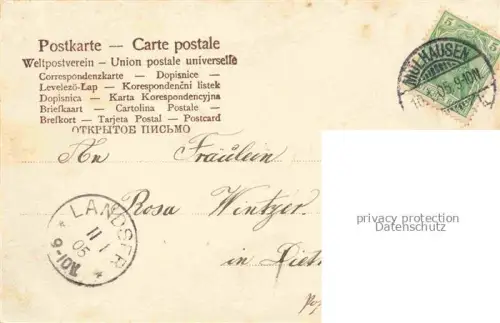 Postkarte — Carte postale
Weltpostverein — Union postale universelle
Correspondenzkarte — Dopisnice —
Levelező-Lap — Korespondenční listek
Dopisnica — Karta Korespondencyjna
Briefkaart — Cartolina Postale —
Brefkort — Tarjeta Postal — Postcard
ОТКРЫТОЕ ПИСЬМО
MÜLHAUSEN
05. 9-10N.
5
An Fräulein
Rosa Wintzer
in
LANDSER
11 1
05
9-10V.
privacy protection
Datenschutz